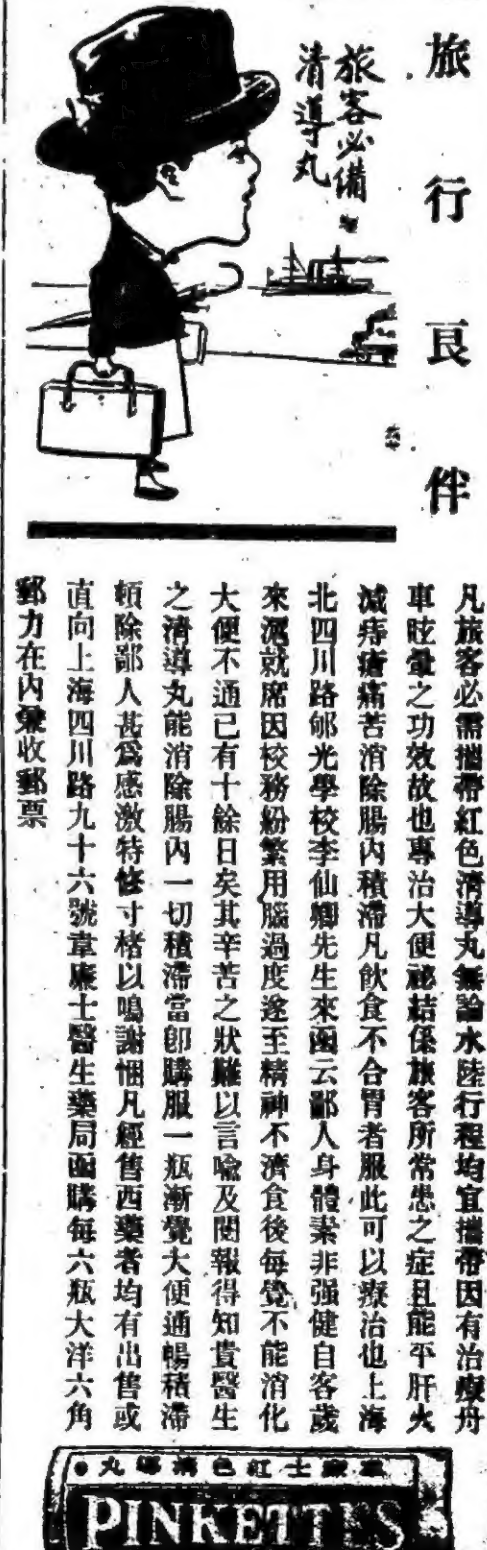 旅行良伴
旅客必備
清導丸
凡旅客必需攜帶紅色清導丸無論水陸行程均宜攜帶因有治療舟
車眩暈之功效故也專治大便祕結係旅客所常患之症且能平肝火
減痔瘡痛苦消除腸內積滯凡飲食不合胃者服此可以療治也上海
北四川路郇光學校李仙卿先生來函云鄙人身體素非强健自客歲
來滬就席因校務紛繁用腦過度遂至精神不濟食後每覺不能消化
大便不通已有十餘日矣其辛苦之狀難以言喩及閱報得知貴醫生
之清導丸能消除腸內一切積滯當卽購服一瓶漸覺大便通暢積滯
頓除鄙人甚爲感激特修寸楮以鳴謝悃凡經售西藥者均有出售或
直向上海四川路九十六號韋廉士醫生藥局函購每六瓶大洋六角
郵力在內兼收郵票
丸導清色紅士廉韋
PINKETTES